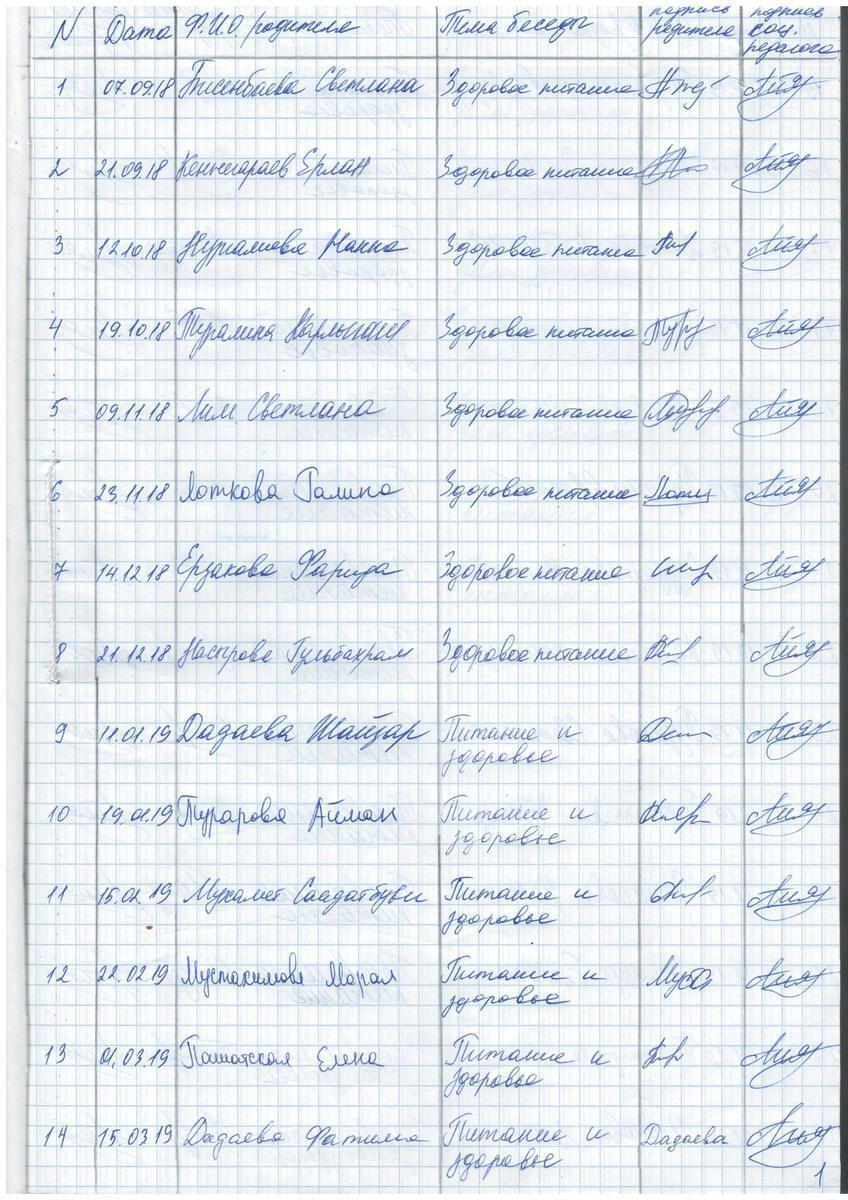 N Дата Ф.И.О. родителя Тема беседы подпись родителя подпись соц. педагога
1 07.09.18 Бисенбаева Светлана Здоровое питание
2 21.09.18 Ерлан Здоровое питание
3 12.10.18 Здоровое питание
4 19.10.18 Турлина Карлыгаш Здоровое питание
5 09.11.18 Лим Светлана Здоровое питание
6 23.11.18 Лоткова Галина Здоровое питание
7 14.12.18 Ерзакова Фарида Здоровое питание
8 21.12.18 Насырова Гульбахрам Здоровое питание
9 11.01.19 Дадаева Шайзар Питание и
здоровье
10 19.01.19 Турарова Айман Питание и
здоровье
11 15.02.19 Мухамет Саадатбуви Питание и
здоровье
12 22.02.19 Мустакимова Марал Питание и
здоровье
13 01.03.19 Елена Питание и
здоровье
14 15.03.19 Дадаева Фатима Питание и Дадаева
здоровье
1